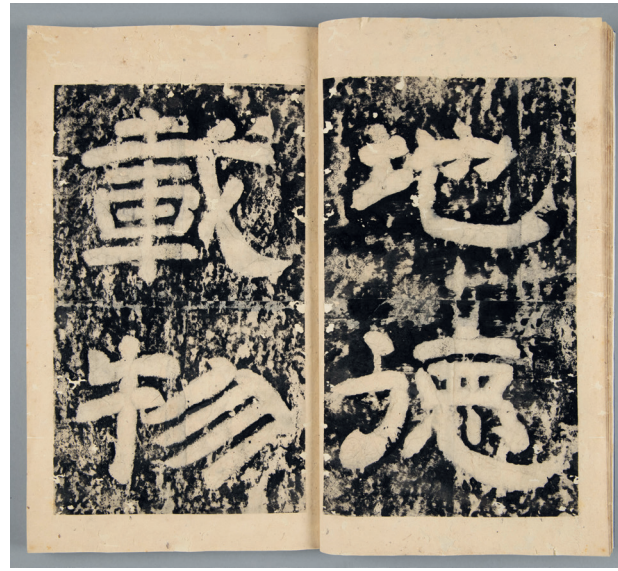 地德
載物